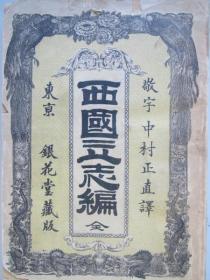 敬宇 中村正直譯
西國立志編
全
東京 銀花堂藏版